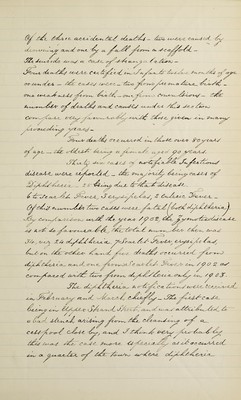 Of the three accidental deaths - two were caused by
drowning and one by a fall from a scaffold -
The suicide was a case of strangulation -
Nine deaths were certified in Infants twelve months of age
or under - the cases were - two from premature birth -
one weakness from birth, one from convulsions - the
number of deaths and causes under this section
compare very favourably with those given in many
preceding years -
Nine deaths occurred in those over 80 years
of age - the oldest being a female aged 90 years
Thirty six cases of notifiable Infectious
disease were reported - the majority being cases of
Diphtheria - 25 being due to that disease
6 to Scarlet Fever, 3 erysipelas, 2 Enteric Fever -
Of this number two cases were fatal (both diphtheria)
By comparison with the year 1902, the Zymotic disease
is not so favourable, the total number then was
34, viz 24 diphtheria, 7 Scarlet Fever, erysipelas,
but on the other hand five deaths occurred from
diphtheria and one from Scarlet Fever in 1902 as
compared with two from diphtheria only in 1903.
The diphtheria notifications were received
in February and March chiefly - The first case
being in Upper Strand Street and was attributed to
a bad stench arising from the cleansing of a
cesspool close by, and I think very probably
this was the case more especially as it occurred
in a quarter of the town where diphtheria